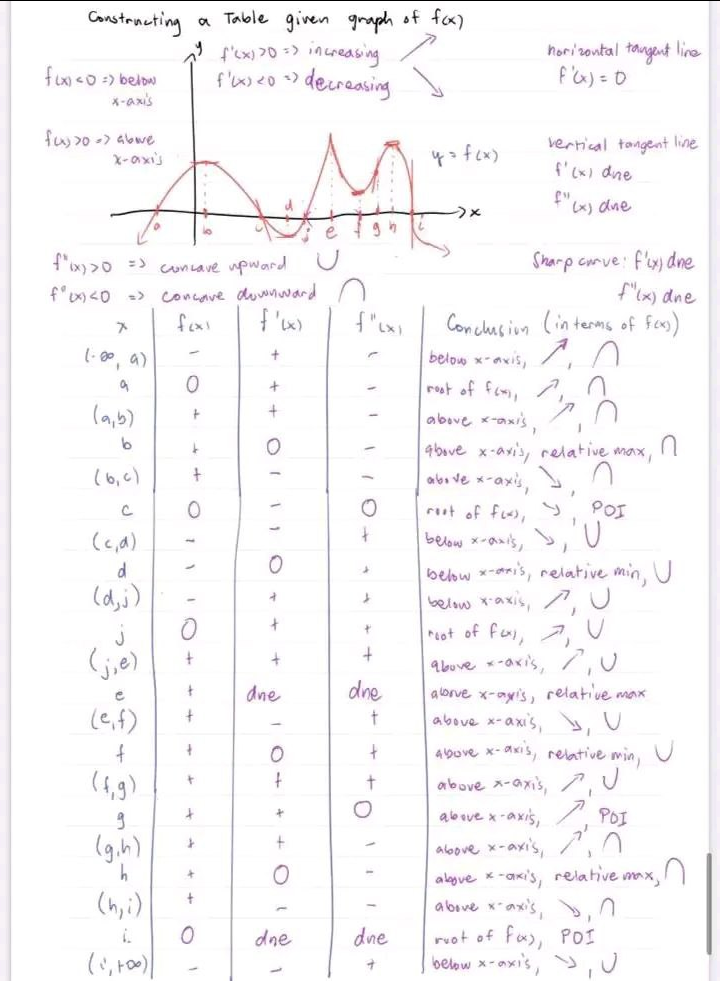 Constructing a Table given graph of f(x)
y
f'(x) >0 => increasing
horizontal tangent line
f(x) <0 => below
x-axis
f'(x) <0 => decreasing
f'(x) = 0
f(x) >0 => above
x-axis
y = f(x)
vertical tangent line
f'(x) dne
f"(x) dne
a b c d j e f g h i x
f"(x) >0 => concave upward ∪
Sharp curve: f'(x) dne
f"(x) <0 => concave downward ∩
f"(x) dne
x f(x) f'(x) f"(x) Conclusion (in terms of f(x))
(-∞, a) - + - below x-axis, ↗, ∩
a 0 + - root of f(x), ↗, ∩
(a,b) + + - above x-axis, ↗, ∩
b + 0 - above x-axis, relative max, ∩
(b,c) + - - above x-axis, ↘, ∩
c 0 - 0 root of f(x), ↘, POI
(c,d) - - + below x-axis, ↘, ∪
d - 0 + below x-axis, relative min, ∪
(d,j) - + + below x-axis, ↗, ∪
j 0 + + root of f(x), ↗, ∪
(j,e) + + + above x-axis, ↗, ∪
e + dne dne above x-axis, relative max
(e,f) + - + above x-axis, ↘, ∪
f + 0 + above x-axis, relative min, ∪
(f,g) + + + above x-axis, ↗, ∪
g + + 0 above x-axis, ↗, POI
(g,h) + + - above x-axis, ↗, ∩
h + 0 - above x-axis, relative max, ∩
(h,i) + - - above x-axis, ↘, ∩
i 0 dne dne root of f(x), POI
(i,+∞) - - + below x-axis, ↘, ∪